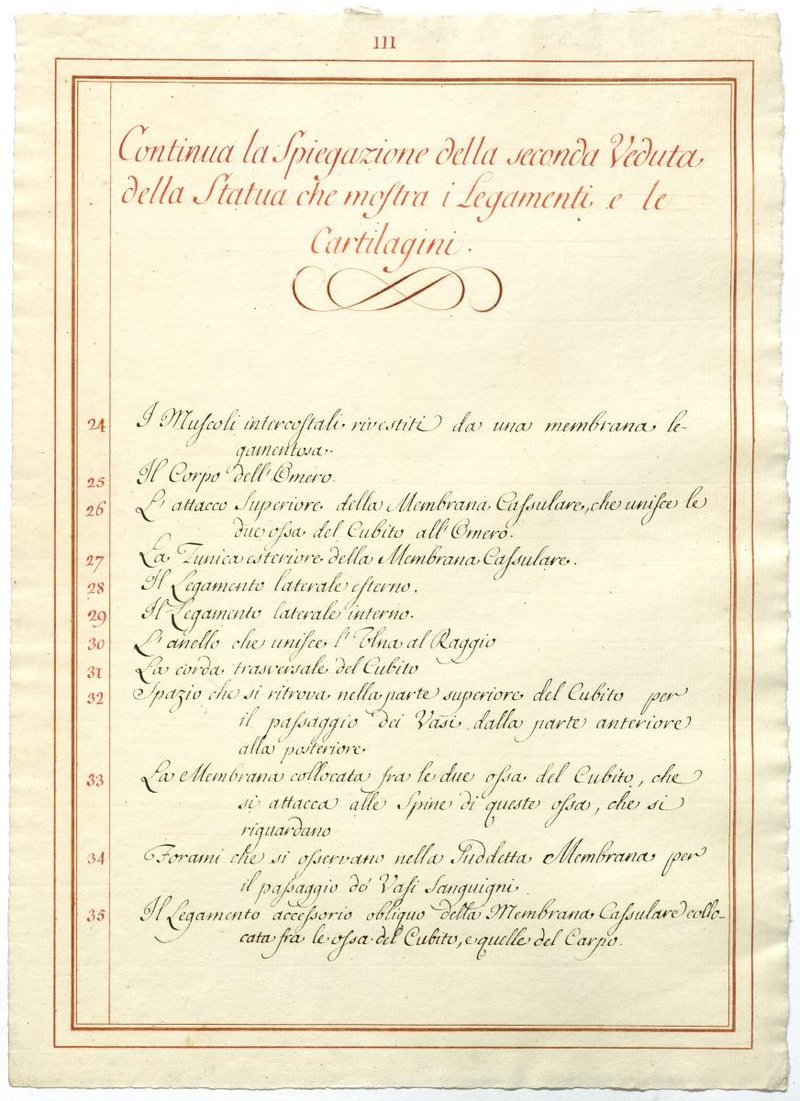 III
Continua la Spiegazione della seconda Veduta
della Statua che moſtra i Legamenti e le
Cartilagini.
24 I Muſcoli intercoſtali rivestiti da una membrana le-
gamentosa.
25 Il Corpo dell'Omero.
26 L'attacco Superiore della Membrana Caſsulare, che uniſce le
due oſsa del Cubito all'Omero.
27 La Tunica esteriore della Membrana Caſsulare.
28 Il Legamento laterale eſterno.
29 Il Legamento laterale interno.
30 L'anello che uniſce l'Ulna al Raggio
31 La corda trasversale del Cubito
32 Spazio che si ritrova nella parte superiore del Cubito per
il paſsaggio dei Vasi dalla parte anteriore
alla posteriore
33 La Membrana collocata fra le due oſsa del Cubito, che
si attacca alle Spine di queste oſsa, che si
riguardano
34 Forami che si osservano nella Suddetta Membrana per
il paſsaggio de' Vaſi Sanguigni
35 Il Legamento accessorio obliquo della Membrana Caſsulare collo-
cata fra le oſsa del Cubito, e quelle del Carpo.